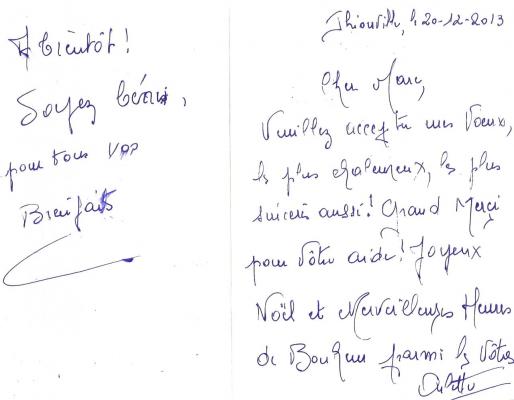 Thionville, le 20-12-2013
Cher Marc,
Veuillez accepter mes Vœux,
les plus chaleureux, les plus
sincères aussi! Grand Merçi
pour vôtre aide! Joyeux
Noël et Merveilleuses Heures
de Bonheur parmi les Vôtres
A bientôt!
Soyez béni,
pour tous vos
Bienfaits